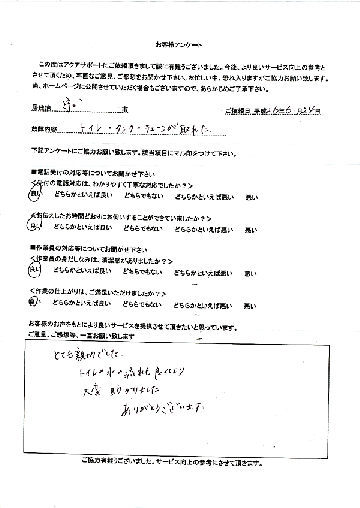 お客様アンケート
この度はアクアサポートにご依頼頂きまして誠に有難うございました。今後、より良いサービス向上の参考と
させて頂くため、率直なご意見、ご感想をお聞かせ下さい。お忙しい中、恐れ入りますがご協力お願い致します。
尚、ホームページに公開させていただく場合もございますので、あらかじめご了承下さい。
居住地 守口 市 ご依頼日 平成26年6月
故障内容 トイレ・タンク・チェーンが取れた
下記アンケートにご協力お願い致します。該当項目にマル印をつけて下さい。
■電話受付の対応等についてお聞かせ下さい
<受付の電話対応は、わかりやすく丁寧な対応でしたか？>
良い どちらかといえば良い どちらでもない どちらかといえば悪い 悪い
<お伝えしたお時間どおりにお伺いすることができていましたか？>
良い どちらかといえば良い どちらでもない どちらかといえば悪い 悪い
■作業員の対応等についてお聞かせ下さい
<作業員の身だしなみは、清潔感がありましたか？>
良い どちらかといえば良い どちらでもない どちらかといえば悪い 悪い
<作業の仕上がりは、ご満足いただけましたか？>
良い どちらかといえば良い どちらでもない どちらかといえば悪い 悪い
お客様のお声をもとにより良いサービスを提供させて頂きたいと思っています。
ご意見、ご感想等、一言お願い致します
とても親切でした。
トイレの水の流れも良くなり
大変助かりました
ありがとうございます。
ご協力有難うございました。サービス向上の参考にさせて頂きます。